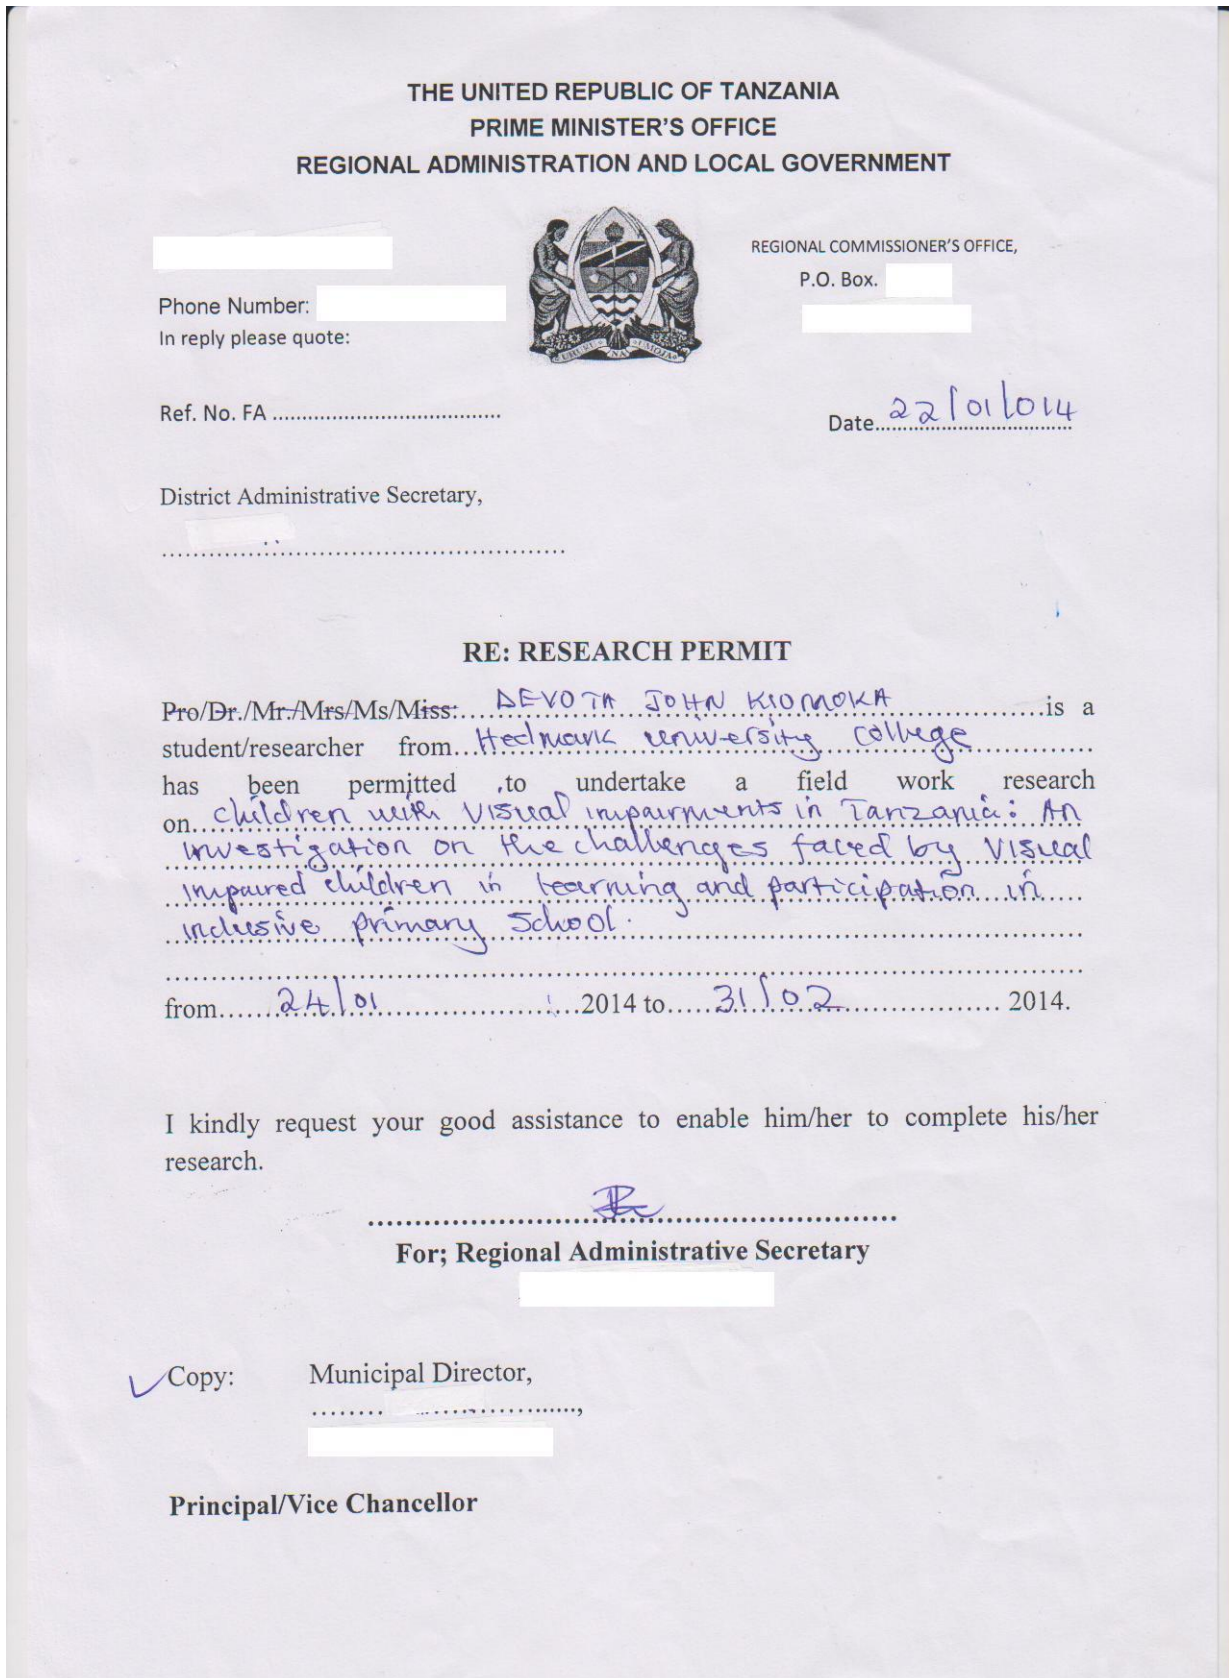 THE UNITED REPUBLIC OF TANZANIA
PRIME MINISTER'S OFFICE
REGIONAL ADMINISTRATION AND LOCAL GOVERNMENT
REGIONAL COMMISSIONER'S OFFICE,
P.O. Box.
Phone Number:
In reply please quote:
UHURU NA UMOJA
Ref. No. FA ......................................
Date 22/01/014
District Administrative Secretary,
RE: RESEARCH PERMIT
Pro/Dr./Mr./Mrs/Ms/Miss: DEVOTA JOHN KIOMOKA is a
student/researcher from Hedmark university college
has been permitted to undertake a field work research
on children with visual impairments in Tanzania: An
investigation on the challenges faced by visual
impaired children in learning and participation in
inclusive primary school.
from 24/01 2014 to 31/02 2014.
I kindly request your good assistance to enable him/her to complete his/her
research.
For; Regional Administrative Secretary
Copy: Municipal Director,
Principal/Vice Chancellor